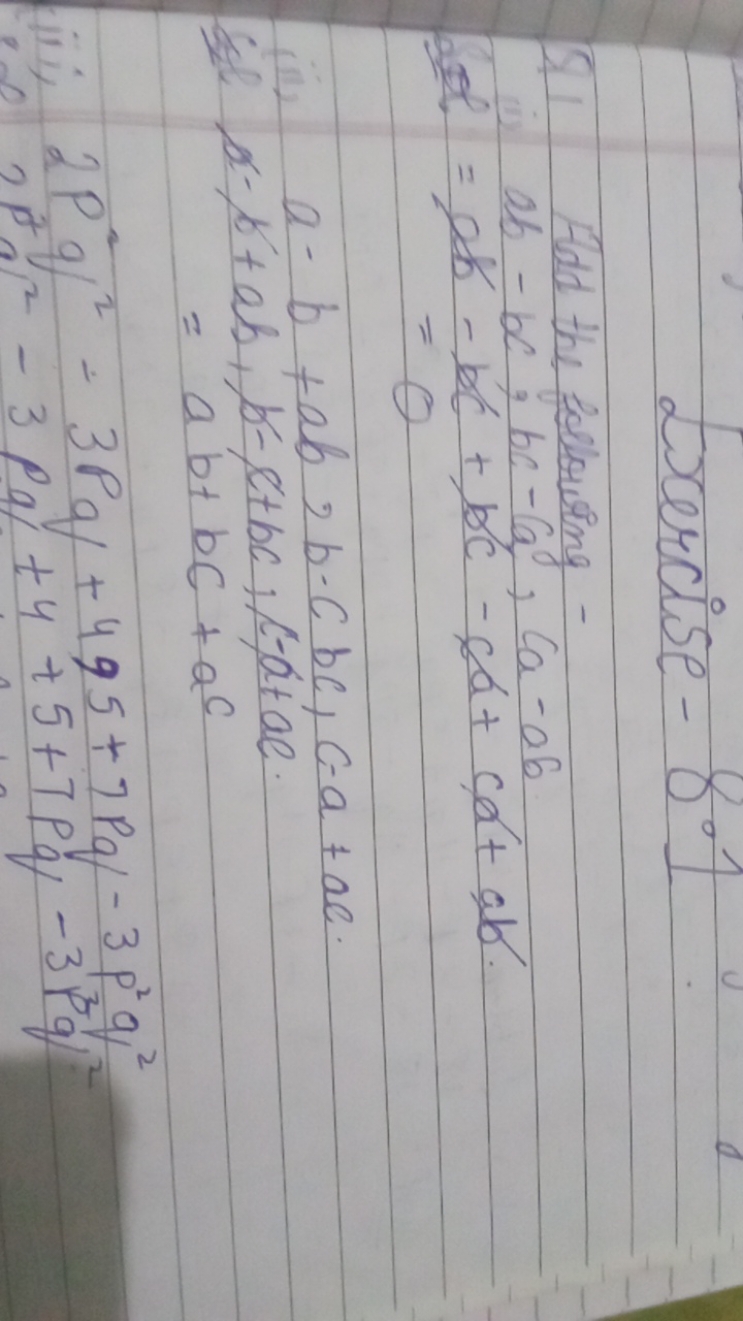 Exercise - 8.1
Q1 Add the following -
i) ab - bc, bc - ca, ca - ab
Sol = ab - bc + bc - ca + ca + ab.
= 0
ii) a - b + ab, b - c bc, c - a + ac.
Sol a - b + ab, b - c + bc, c - a + ac.
= ab + bc + ac
iii) 2p²q² - 3pq + 4 95 + 7pq - 3p²q²
Sol 2p²q² - 3pq + 4 + 5 + 7pq - 3p²q²